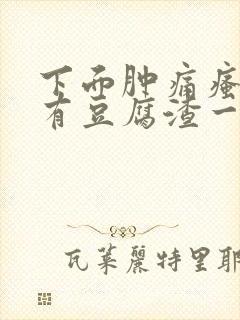 下面肿痛瘙
有豆腐渣一
瓦莱丽特里耶